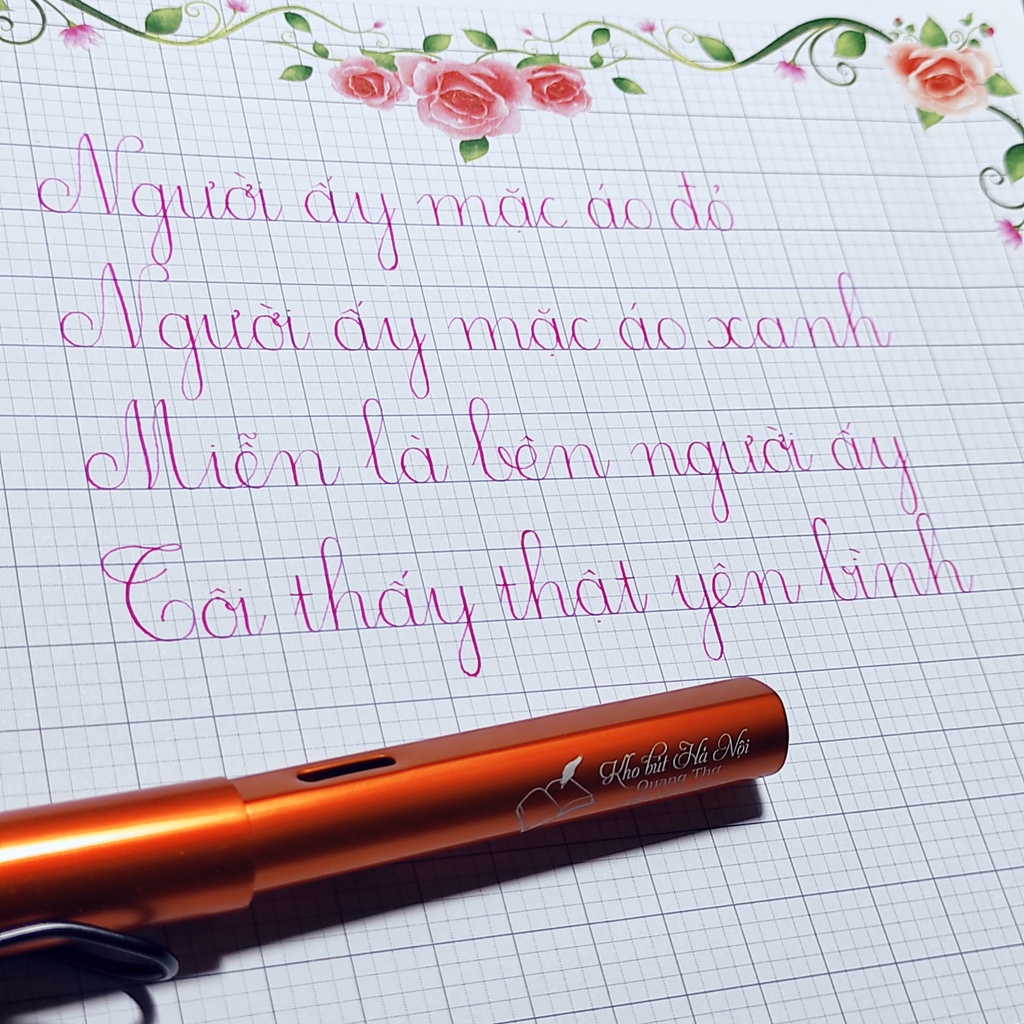 Người ấy mặc áo đỏ
Người ấy mặc áo xanh
Miễn là bên người ấy
Tôi thấy thật yên bình
Kho bút Hà Nội
Quang Thơ